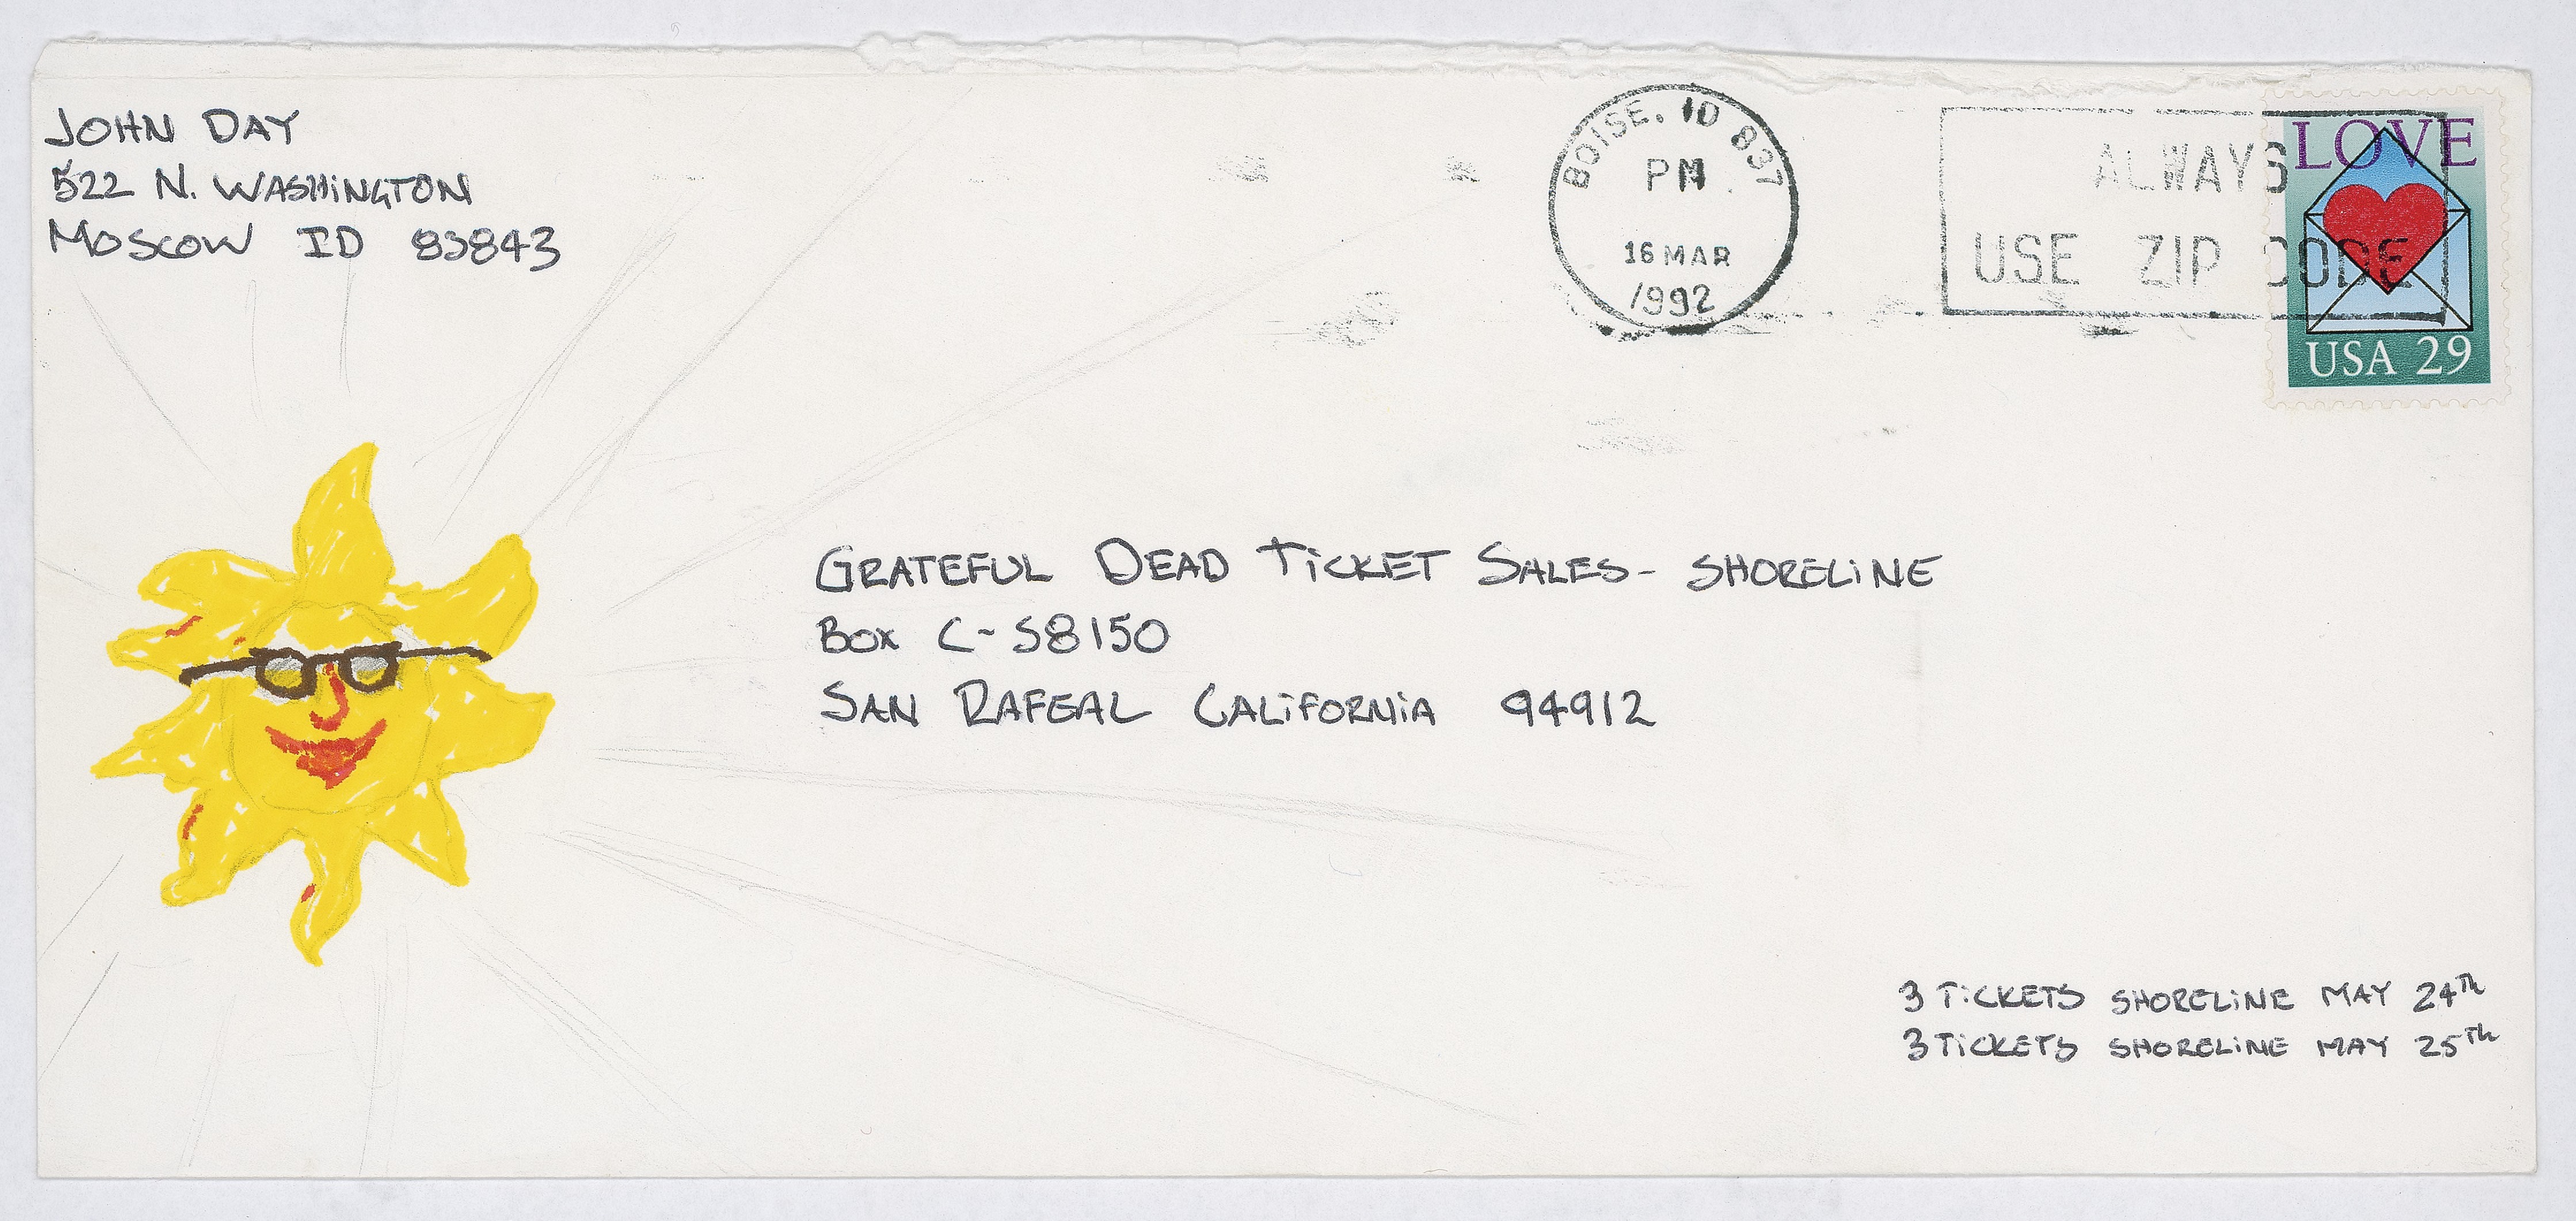 JOHN DAY
522 N. WASHINGTON
MOSCOW ID 83843
BOISE. ID 837
PM
16 MAR
1992
ALWAYS
USE ZIP CODE
LOVE
USA 29
GRATEFUL DEAD TICKET SALES- SHORELINE
BOX C-S8150
SAN RAFEAL CALIFORNIA 94912
3 TICKETS SHORELINE MAY 24TH
3 TICKETS SHORELINE MAY 25TH